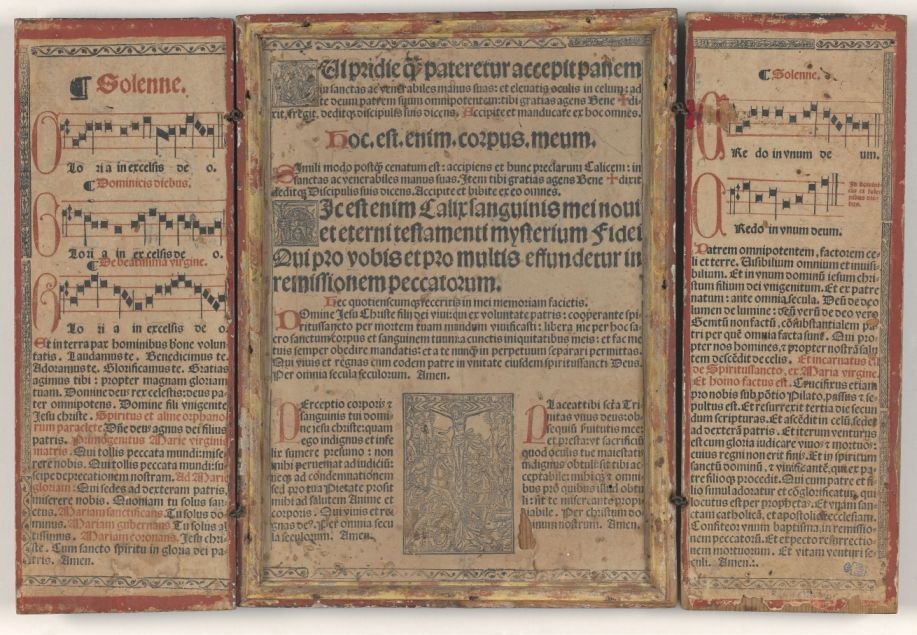 ¶ Solenne.
Lo ri a in excelsis de o.
¶ Dominicis diebus.
Lo ri a in ex celsis de o.
¶ De beatissima virgine.
Lo ri a in excelsis de o.
Et in terra pax hominibus bone volun
tatis. Laudamus te. Benedicimus te.
Adoramus te. Glorificamus te. Gratias
agimus tibi: propter magnam gloriam
tuam. Domine deus rex celestis: deus pa
ter omnipotens. Domine fili vnigenite
Jesu christe. Spiritus et alme orphano
rum paraclete Dñe deus agnus dei filius
patris. Primogenitus Marie virginis
matris. Qui tollis peccata mundi: mise
rere nobis. Qui tollis peccata mundi: su
scipe deprecationem nostram. Ad Marie
gloriam: Qui sedes ad dexteram patris.
miserere nobis. Quoniam tu solus san
ctus. Mariam sanctificans Tu solus do
minus. Mariam gubernans Tu solus al
tissimus. Mariam coronans. Jesu chri
ste. Cum sancto spiritu in gloria dei pa
tris. Amen.
QUi pridie q̃ pateretur accepit panem
in sanctas ac venerabiles manus suas: et eleuatis oculis in celum: ad
te deum patrem suum omnipotentem: tibi gratias agens Bene ✝di
xit, fregit, deditq̃ discipulis suis dicens. Accipite et manducate ex hoc omnes.
Hoc. est. enim. corpus. meum.
Simili modo postq̃ cenatum est: accipiens et hunc preclarum Calicem: in
sanctas ac venerabiles manus suas. Item tibi gratias agens Bene ✝dixit
deditq̃ Discipulis suis dicens. Accipite et bibite ex eo omnes.
HIc est enim Calix sanguinis mei noui
et eterni testamenti mysterium Fidei
Qui pro vobis et pro multis effundetur in
remissionem peccatorum.
Hec quotienscumq̃ feceritis in mei memoriam facietis.
DOmine Jesu Christe filii dei viui: qui ex voluntate patris: cooperante spi
ritussancto per mortem tuam mundum viuificasti: libera me per hoc sa
cro sanctum corpus et sanguinem tuum: a cunctis iniquitatibus meis: et fac me
tuis semper obedire mandatis: et a te nunq̃ in perpetuum separari permittas.
Qui viuis et regnas cum eodem patre in vnitate eiusdem spiritussancti Deus.
Per omnia secula seculorum. Amen.
PErceptio corporis et
sanguinis tui domi
ne jesu christe: quam
ego indignus et infe
lix sumere presumo: non
mihi perueniat ad iudiciũ:
nec ad condemnationem
sed pro tua Pietate prosit
mihi ad salutem Anime et
corporis. Qui viuis et re
gnas deꝰ. Per omnia secu
la seculorum. Amen.
PLaceat tibi scta Tri
nitas vnus deus: ob
sequiũ seruitutis mee:
et presta: vt sacrificiũ
quod oculis tue maiestatis
indignus obtuli: sit tibi ac
ceptabile: mihiq̃ et omni
bus pro quibus illud obtu
li: sit te miserante propi
tiabile. Per christum do
minum nostrum. Amen.
¶ Solenne.
Re do in vnum de um.
Redo in vnum deum.
Patrem omnipotentem, factorem ce
li et terre. Visibilium omnium et inuisi
bilium. Et in vnum dominũ iesum chri
stum filium dei vnigenitum. Et ex patre
natum: ante omnia secula. Deũ de deo
lumen de lumine: deũ verũ de deo vero
Genitũ non factũ, cõsubstantialem pa
tri per quẽ omnia facta sunt. Qui pro
pter nos homines, et propter nostrã salu
tem descẽdit de celis. Et incarnatus est
de Spiritussancto, ex Maria virgine
Et homo factus est. Crucifixus etiam
pro nobis sub põtio Pilato, passus et se
pultus est. Et resurrexit tertia die secun
dum scripturas. Et ascẽdit in celũ: sedet
ad dexterã patris. Et iterum venturus
est cum gloria iudicare viuos et mortuos:
cuius regni non erit finis. Et in spiritum
sanctũ dominũ, et viuificantẽ, qui ex pa
tre filioq̃ procedit. Qui cum patre et fi
lio simul adoratur et cõglorificatur, qui
locutus est per prophetas. Et vnam san
ctam catholicã, et apostolicã ecclesiam.
Confiteor vnum baptisma, in remissio
nem peccatorũ. Et expecto resurrectio
nem mortuorum. Et vitam venturi se
culi. Amen.